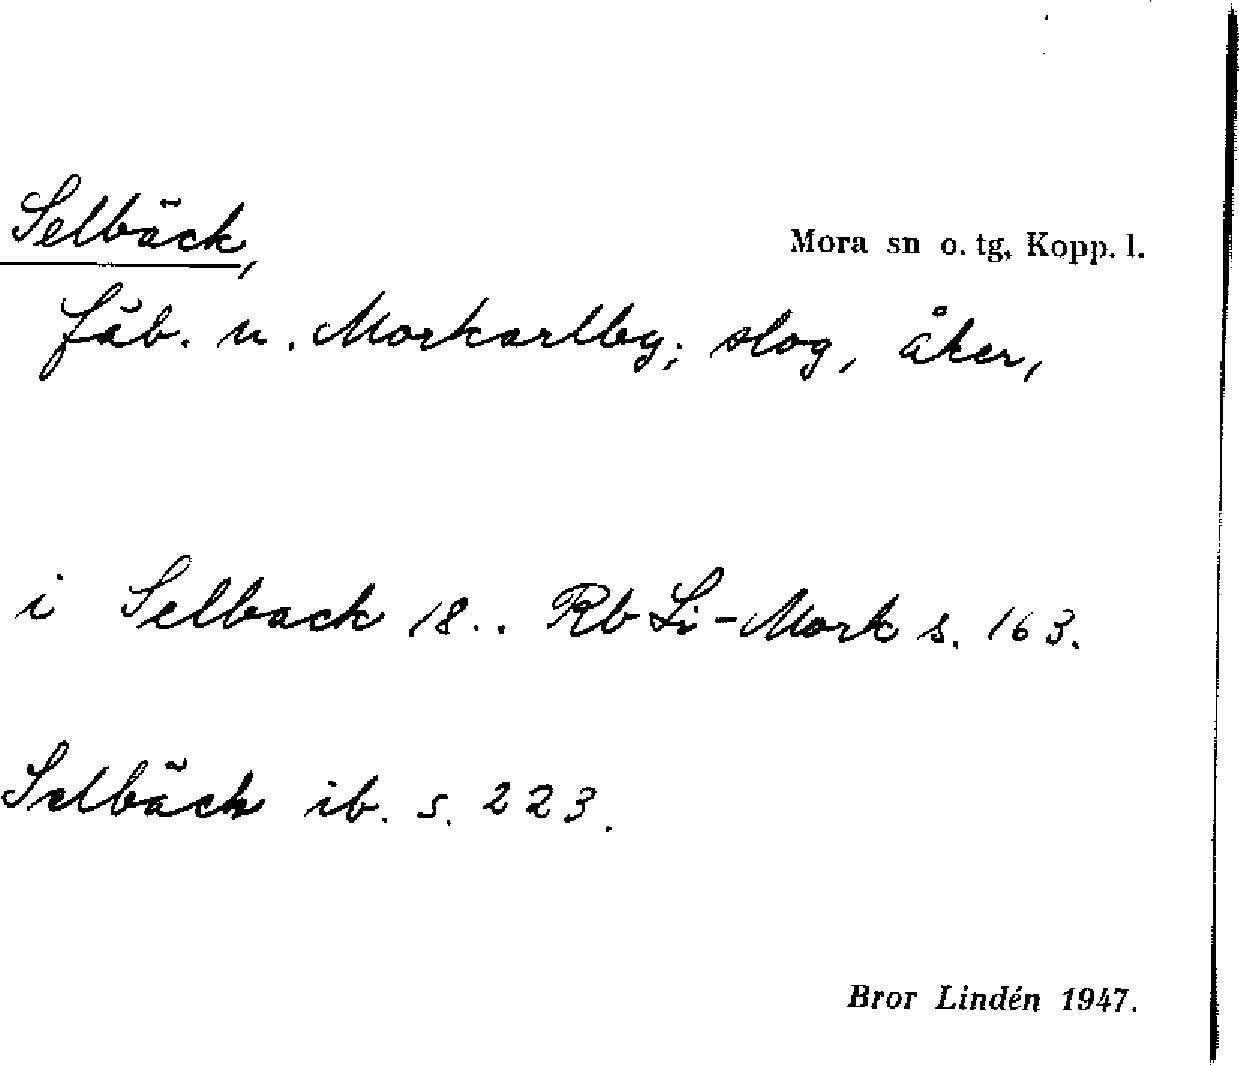 Selbäck,
Mora sn o. tg, Kopp. l.
fäb. u. Morkarlby; slog, åker,
i Selback 18.. Rb Li-Mork s. 163.
Selbäck ib. s. 223.
Bror Lindén 1947.